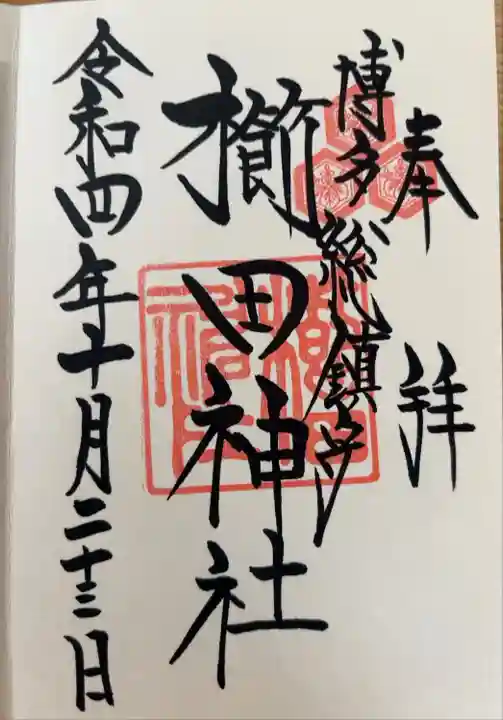 奉拝
博多総鎮守
櫛田神社
令和四年十月二十三日